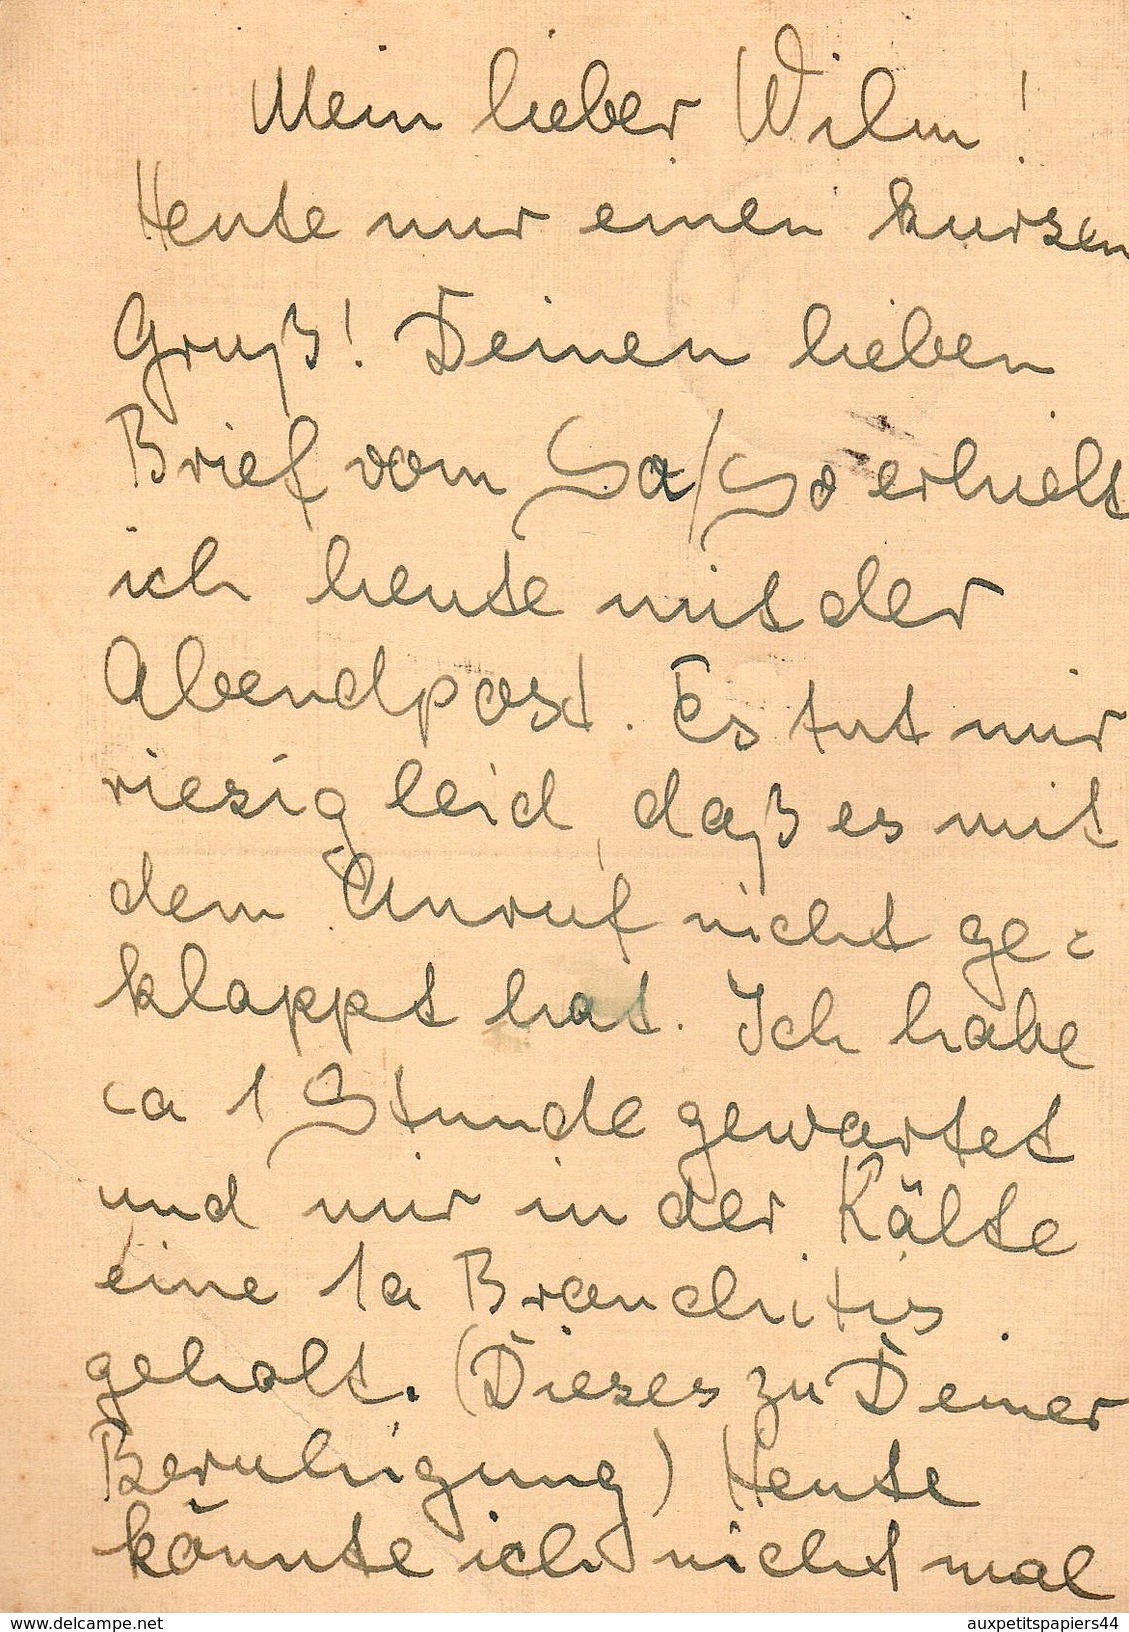 Mein lieber Wilm!
Heute nur einen kurzen
Gruß! Deinen lieben
Brief vom Sa/So erhielt
ich heute mit der
Abendpost. Es tut mir
riesig leid, daß es mit
dem Anruf nicht ge=
klappt hat. Ich habe
ca 1 Stunde gewartet
und mir in der Kälte
eine 1a Bronchitis
geholt. (Dieses zu Deiner
Beruhigung) Heute
könnte ich nicht mal
www.delcampe.net auxpetitspapiers44